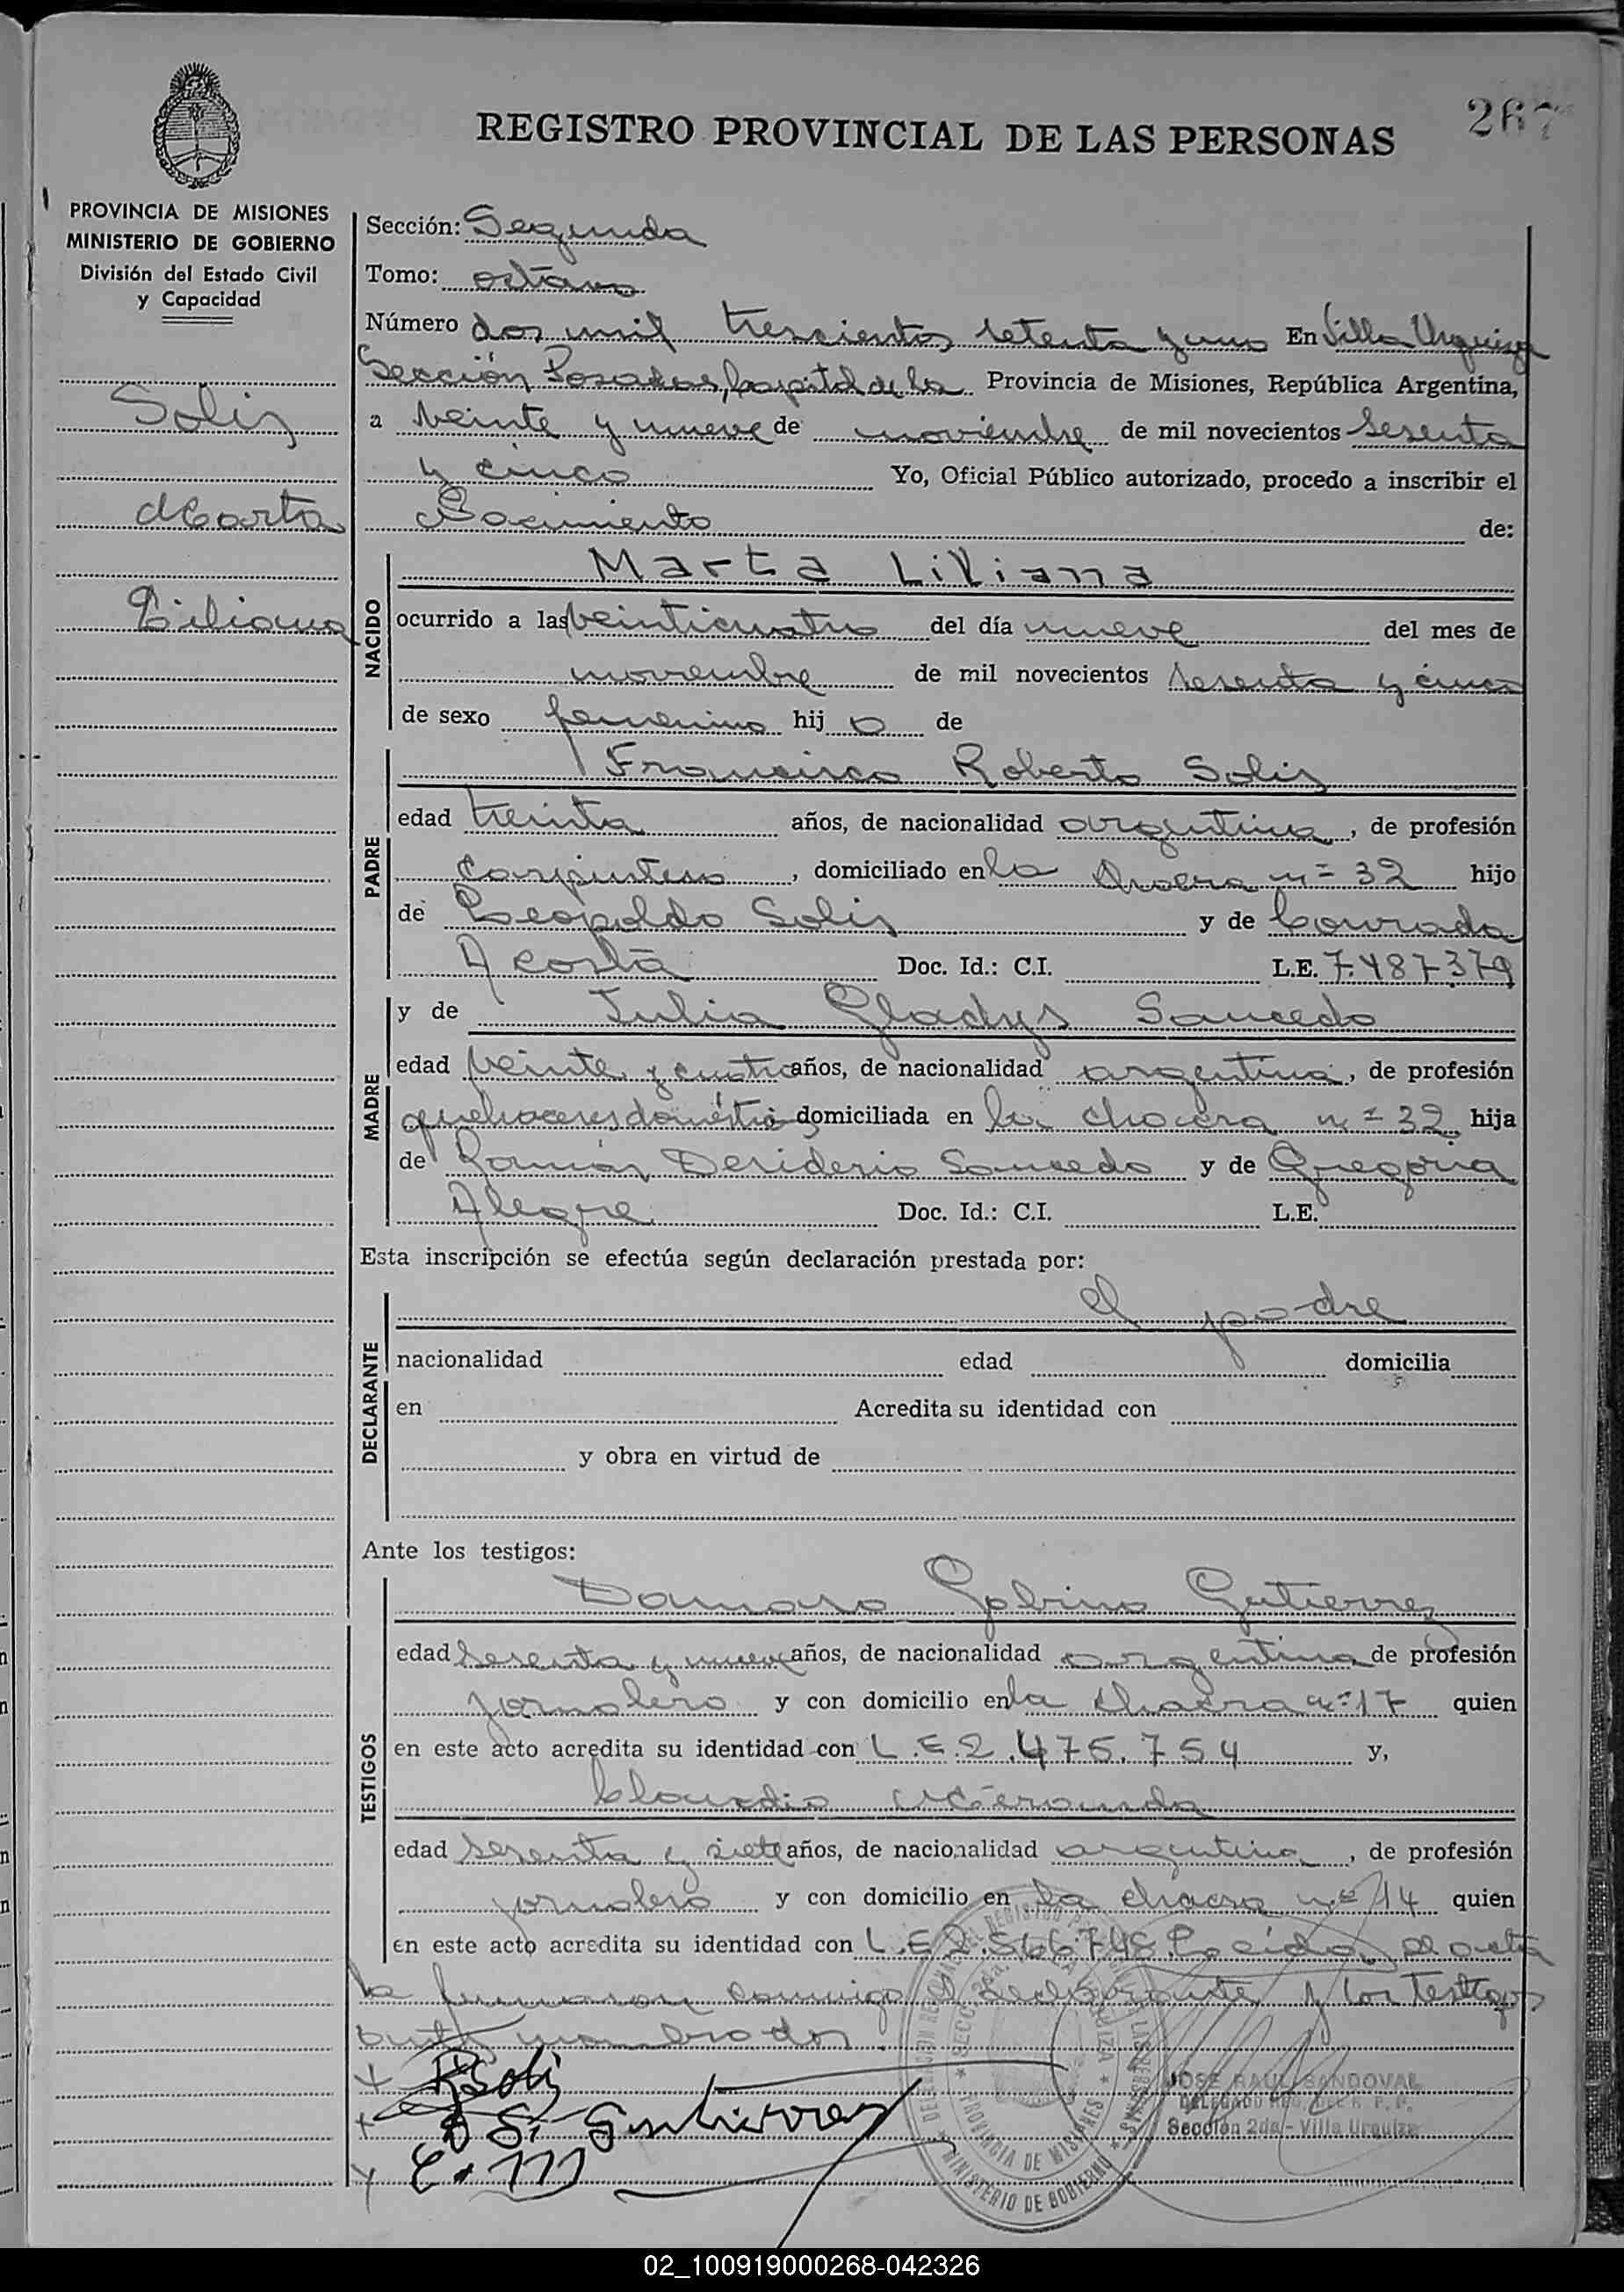 REGISTRO PROVINCIAL DE LAS PERSONAS
267
PROVINCIA DE MISIONES
MINISTERIO DE GOBIERNO
División del Estado Civil
y Capacidad
Solis
Marta
Liliana
Sección: Segunda
Tomo: octavo
Número dos mil trescientos setenta y uno En Villa Urquiza
Sección Posadas, capital de la Provincia de Misiones, República Argentina,
a veinte y nueve de noviembre de mil novecientos sesenta
y cinco Yo, Oficial Público autorizado, procedo a inscribir el
Nacimiento de:
NACIDO
Marta Liliana
ocurrido a las veinticuatro del día nueve del mes de
noviembre de mil novecientos sesenta y cinco
de sexo femenino hij a de
PADRE
Francisco Roberto Solis
edad treinta años, de nacionalidad argentina, de profesión
carpintero, domiciliado en la chacra nº 32 hijo
de Leopoldo Solis y de Conrada
Acosta Doc. Id.: C.I. L.E. 7.487.379
MADRE
y de Julia Gladys Saucedo
edad veinte y cuatro años, de nacionalidad argentina, de profesión
quehaceres domésticos domiciliada en la chacra nº 32 hija
de Ramón Desiderio Saucedo y de Gregoria
Alegre Doc. Id.: C.I. L.E.
Esta inscripción se efectúa según declaración prestada por:
DECLARANTE
el padre
nacionalidad edad domicilia
en Acredita su identidad con
y obra en virtud de
Ante los testigos:
TESTIGOS
Damaso Gabino Gutierrez
edad sesenta y nueve años, de nacionalidad argentina de profesión
jornalero y con domicilio en la chacra nº 17 quien
en este acto acredita su identidad con L.E. 2.475.754 y,
Claudio Miranda
edad sesenta y siete años, de nacionalidad argentina, de profesión
jornalero y con domicilio en la chacra nº 14 quien
en este acto acredita su identidad con L.E. 2.566.748. Leída el acta
la firmaron conmigo el declarante y los testigos
antes nombrados.
R Solis
D G. Gutierrez
C. M
JOSE RAUL SANDOVAL
DELEGADO REG. DEL R. P. P.
Sección 2da - Villa Urquiza
PROVINCIA DE MISIONES
MINISTERIO DE GOBIERNO
02_100919000268-042326